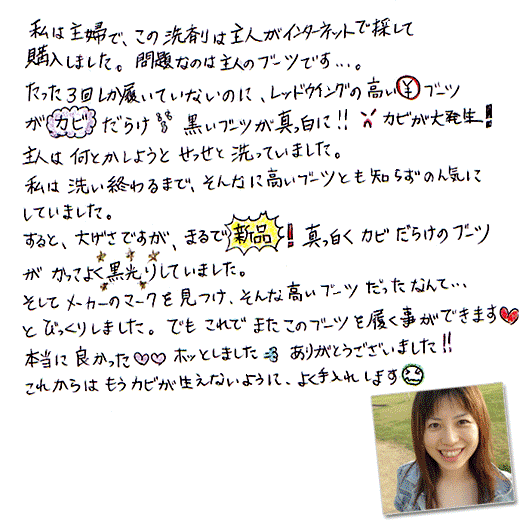 私は主婦で、この洗剤は主人がインターネットで探して
購入しました。問題なのは主人のブーツです…。
たった3回しか履いていないのに、レッドウイングの高い¥ブーツ
がカビだらけ 黒いブーツが真っ白に!! カビが大発生!
主人は何とかしようとせっせと洗っていました。
私は洗い終わるまで、そんなに高いブーツとも知らずのん気に
していました。
すると、大げさですが、まるで新品! 真っ白くカビだらけのブーツ
がかっこよく黒光りしていました。
そしてメーカーのマークを見つけ、そんな高いブーツだったなんて…
とびっくりしました。でもこれでまたこのブーツを履く事ができます
本当に良かった ホッとしました ありがとうございました!!
これからはもうカビが生えないように、よく手入れします